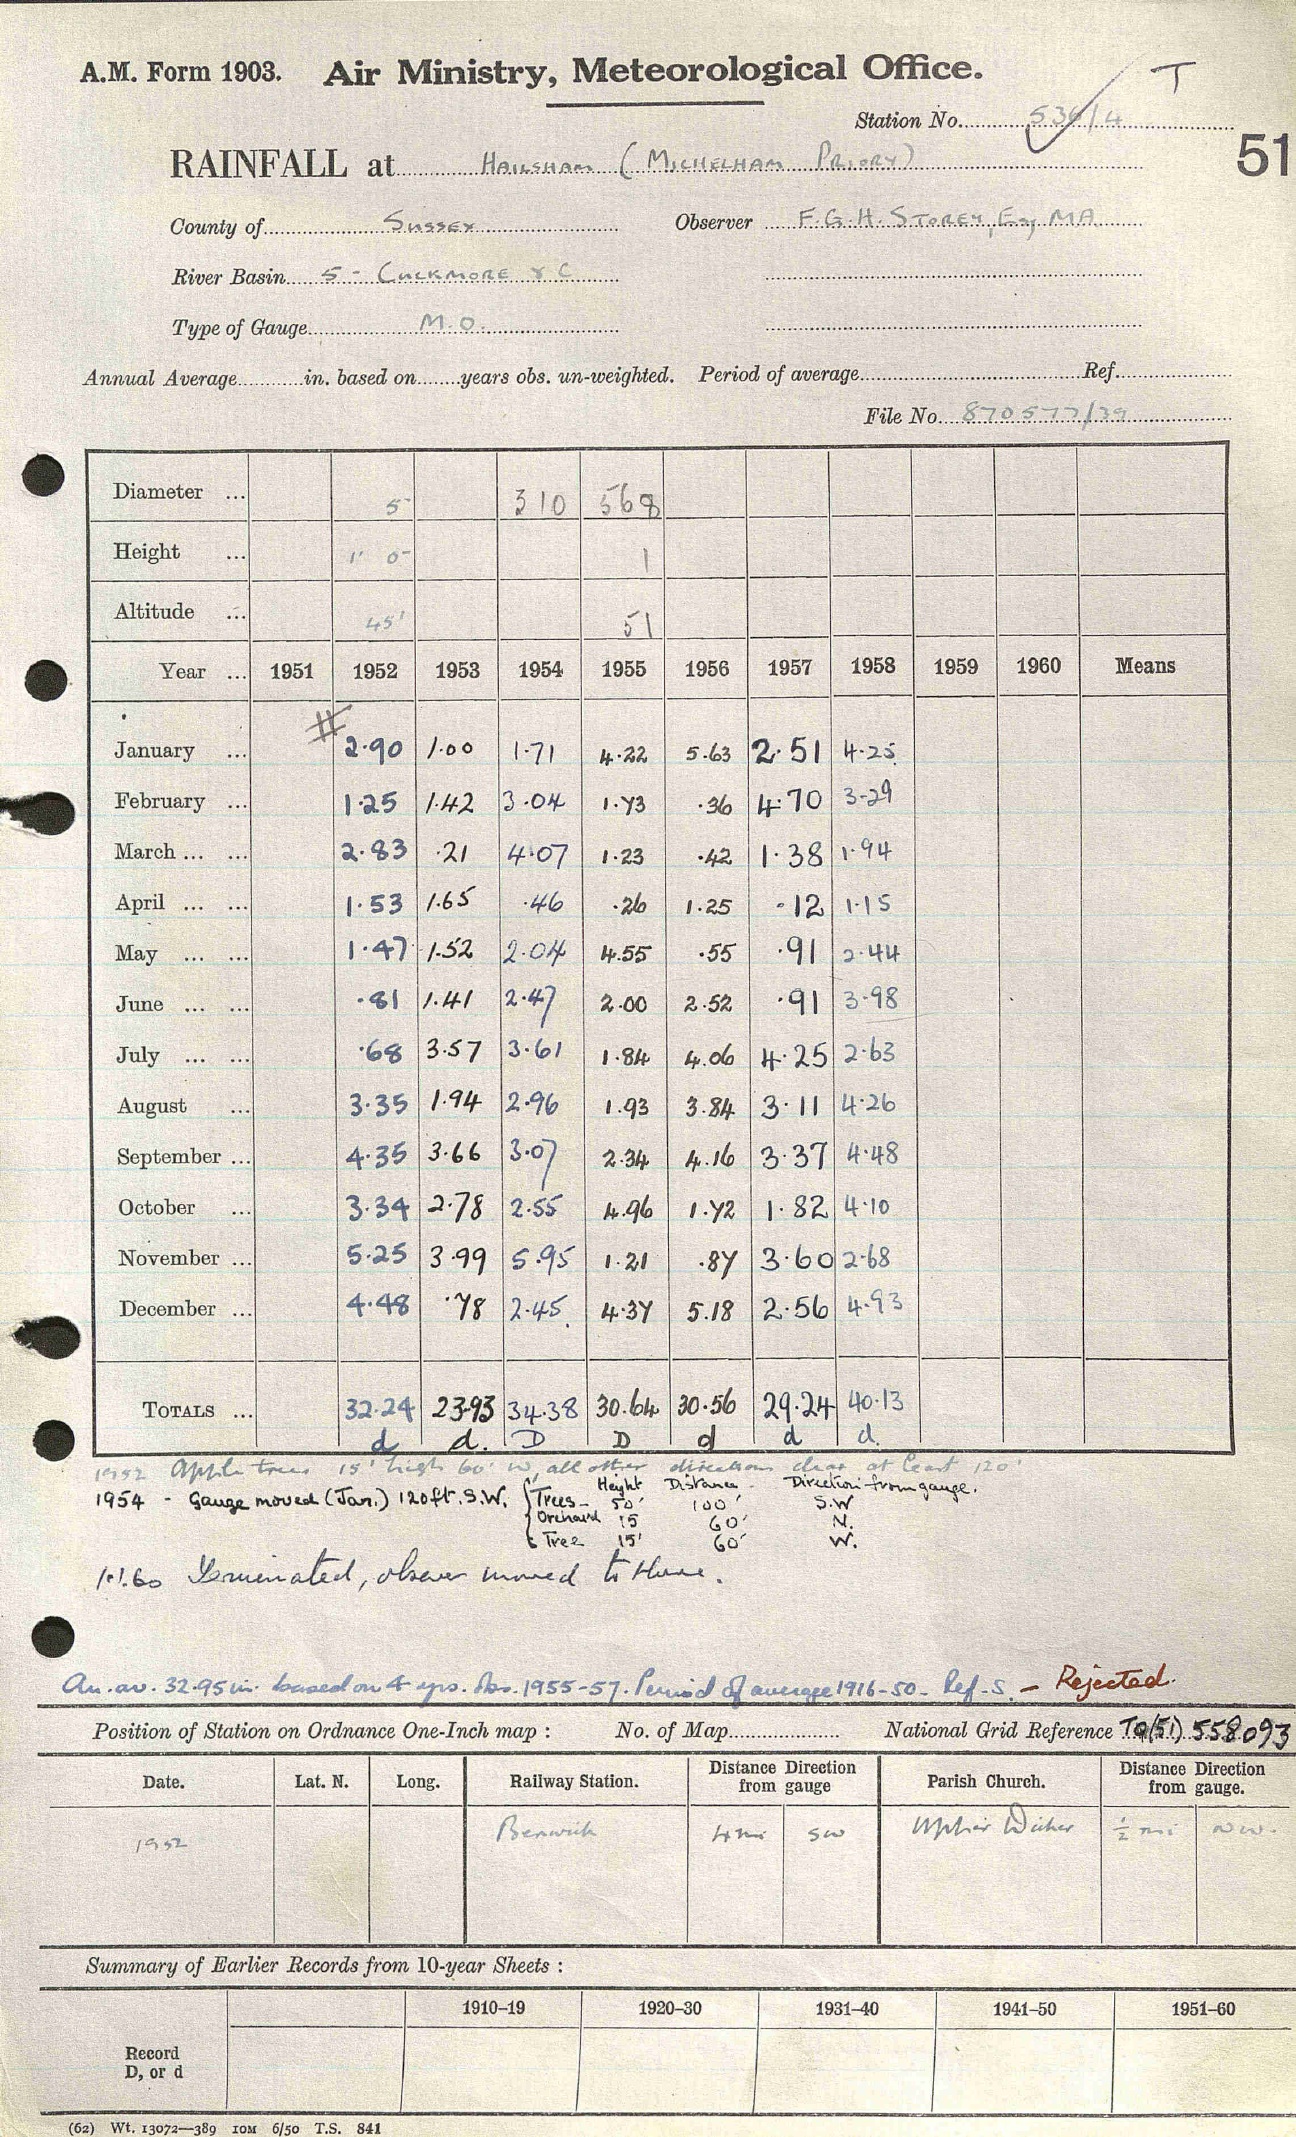 A.M. Form 1903. Air Ministry, Meteorological Office. T
Station No. 536/4
51
RAINFALL at Hailsham (Michelham Priory)
County of Sussex Observer F.G.H. Storey, Esq, MA
River Basin 5 - Cuckmore & C
Type of Gauge M.O.
Annual Average in. based on years obs. un-weighted. Period of average Ref.
File No. 870577/39
Diameter ... 5" 310 568
Height ... 1' 0" 1
Altitude ... 45' 51
Year ... 1951 1952 1953 1954 1955 1956 1957 1958 1959 1960 Means
January ... # 2.90 1.00 1.71 4.22 5.63 2.51 4.25
February ... 1.25 1.42 3.04 1.73 .36 4.70 3.29
March ... ... 2.83 .21 4.07 1.23 .42 1.38 1.94
April ... ... 1.53 1.65 .46 .26 1.25 .12 1.15
May ... ... 1.47 1.52 2.04 4.55 .55 .91 2.44
June ... ... .81 1.41 2.47 2.00 2.52 .91 3.98
July ... ... .68 3.57 3.61 1.84 4.06 4.25 2.63
August ... 3.35 1.94 2.96 1.93 3.84 3.11 4.26
September ... 4.35 3.66 3.07 2.34 4.16 3.37 4.48
October ... 3.34 2.78 2.55 4.96 1.72 1.82 4.10
November ... 5.25 3.99 5.95 1.21 .87 3.60 2.68
December ... 4.48 .78 2.45 4.37 5.18 2.56 4.93
Totals ... 32.24 23.93 34.38 30.64 30.56 29.24 40.13
d d. D D d d d.
1952 Apple trees 15' high 60' W, all other directions clear at least 120'
Height Distance Direction from gauge.
1954 - Gauge moved (Jan.) 120ft. S.W. Trees - 50' 100' S.W
Orchard 15 60' N.
Tree 15' 60' W.
1.1.60 Terminated, observer moved to
An. av. 32.95 in. based on 4 yrs. obs. 1955-57. Period of average 1916-50 - Ref. S. - Rejected.
Position of Station on Ordnance One-Inch map : No. of Map National Grid Reference TQ(51) 558093
Date. Lat. N. Long. Railway Station. Distance Direction from gauge Parish Church. Distance Direction from gauge.
1952 Berwick 4 mi SW Upper Dicker ½ mi NW.
Summary of Earlier Records from 10-year Sheets :
1910–19 1920–30 1931–40 1941–50 1951–60
Record
D, or d
(62) Wt. 13072—389 10M 6/50 T.S. 841